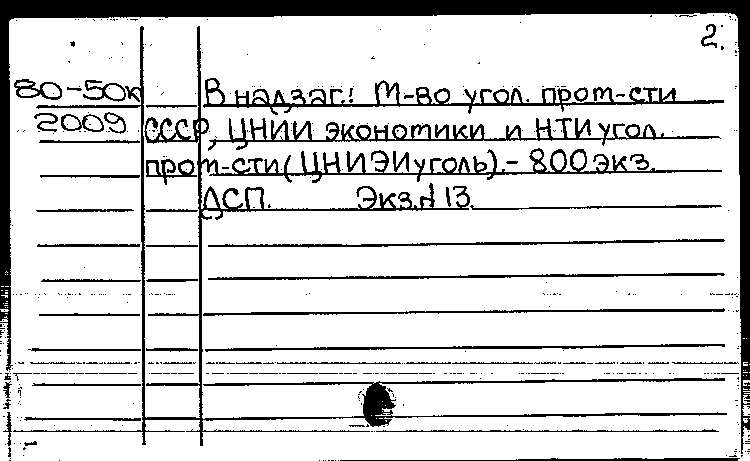 2.
80-50к В надзаг.: М-во угол. пром-сти
2009 СССР, ЦНИИ экономики и НТИ угол.
пром-сти (ЦНИЭИуголь).- 800 экз.
ДСП. Экз.№ 13.